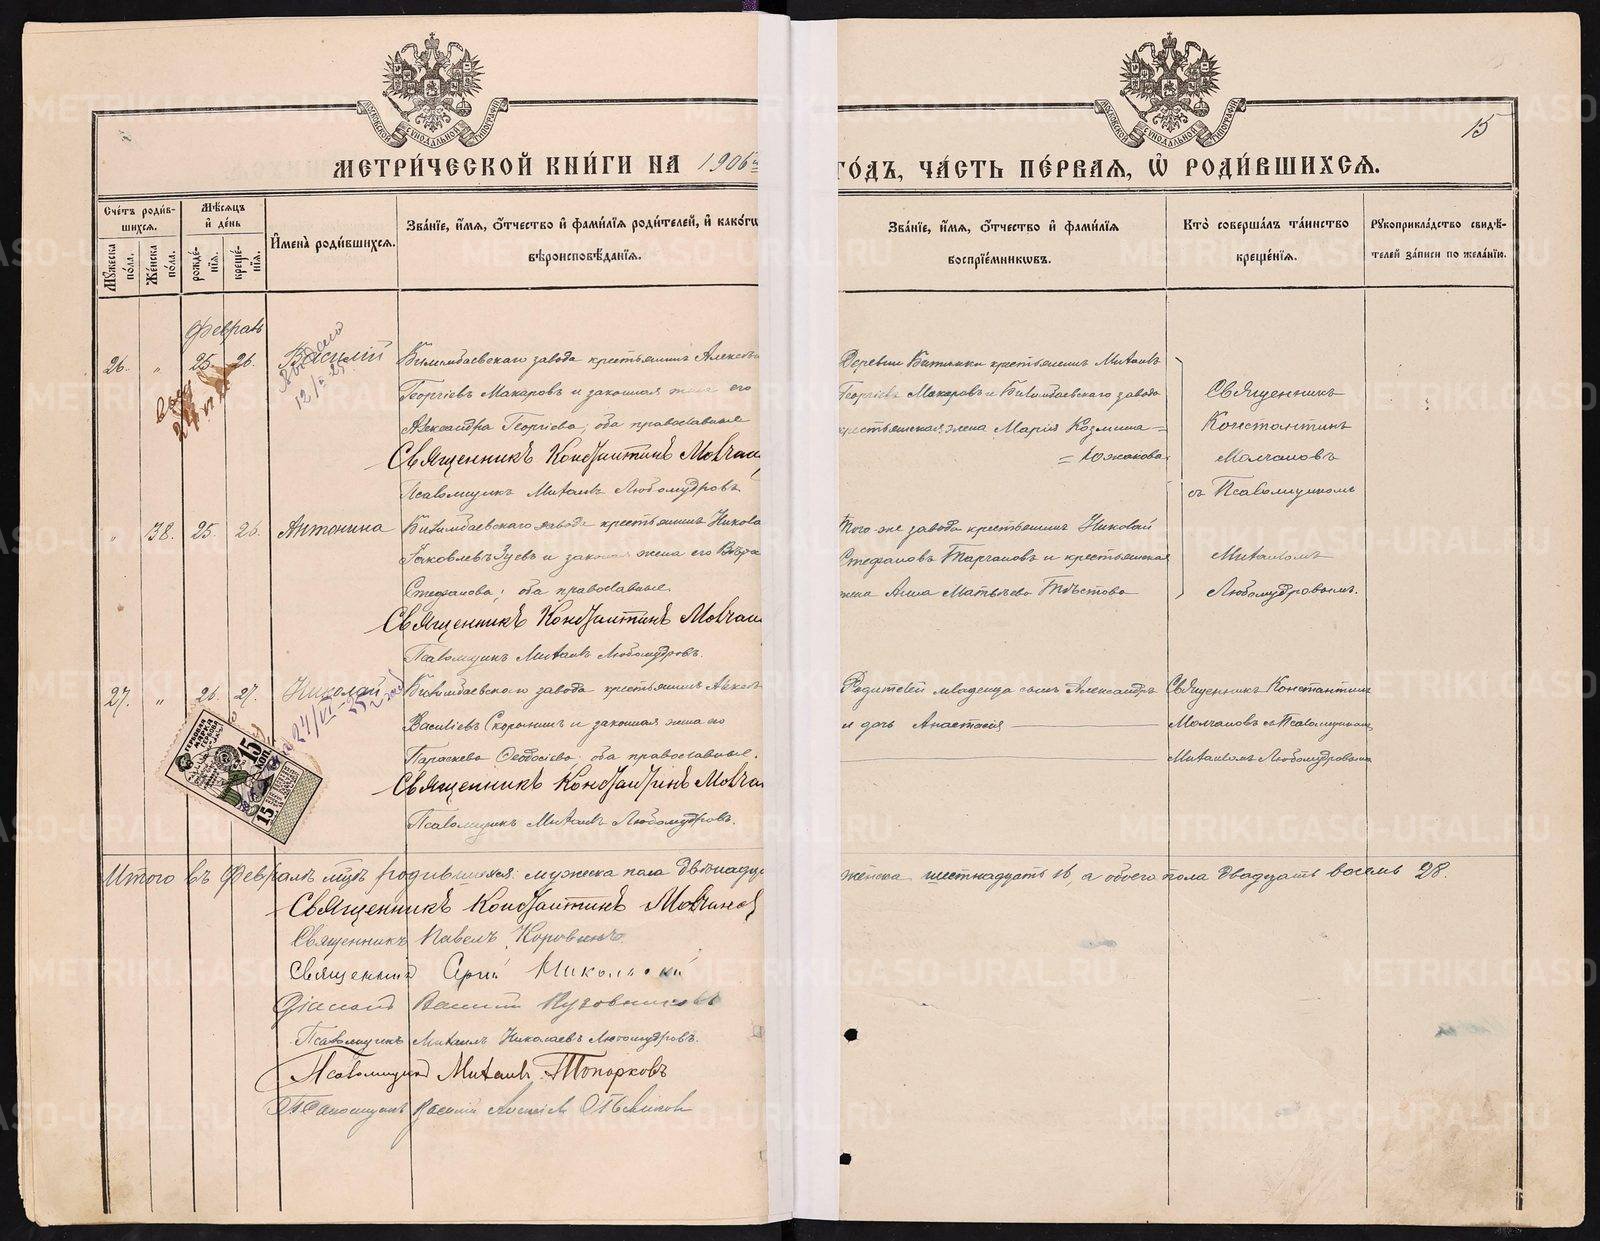 МЕТРИ́ЧЕСКОЙ КНИ́ГИ НА 1906й
ГО́ДЪ, ЧА́СТЬ ПЕ́РВАЯ, Ѡ҆ РОДИ́ВШИХСѦ.
15
Сче́тъ роди́в-
шихсѧ.
Мꙋ́жеска по́ла.
Же́нска по́ла.
Мѣ́сѧцъ и҆ де́нь
рожде́-
нїѧ.
креще́-
нїѧ.
И҆мена̀ роди́вшихсѧ.
Зва́нїе, и҆́мѧ, ѻ҆́тчество и҆ фами́лїѧ роди́телей, и҆ како́гѡ
вѣроисповѣ́данїѧ.
Зва́нїе, и҆́мѧ, ѻ҆́тчество и҆ фами́лїѧ
воспрїе́мникѡвъ.
Кто̀ соверша́лъ та́инство
креще́нїѧ.
Рꙋкоприкла́дство свидѣ́-
телей за́писи по жела́нїю.
Февраль
26. " 25. 26. Василій
Билимбаевскаго завода крестьянинъ Алексѣй
Георгіевъ Макаровъ и законная жена его
Александра Георгіева, оба православные
Священникъ Константинъ Молчан
Псаломщикъ Михаилъ Любомудровъ
Деревни Битимки крестьянинъ Михаилъ
Георгіевъ Макаровъ и Билимбаевскаго завода
крестьянская жена Марія Козмина =
= Южакова
Священникъ
Константинъ
Молчановъ
съ Псаломщикомъ
Михаиломъ
Любомудровымъ.
" 38. 25. 26. Антонина
Билимбаевскаго завода крестьянинъ Никола
Яковлевъ Зуевъ и законная жена его
Стефанова, оба православные
Священникъ Константинъ Молчан
Псаломщикъ Михаилъ Любомудровъ.
Того же завода крестьянинъ Николай
Стефановъ и крестьянская
жена Анна Матвѣева
27. " 26. 27. Николай
24/VI-25
Билимбаевскаго завода крестьянинъ Алекс
Василіевъ Скорынинъ и законная жена его
Параскева Ѳеодосіева, оба православные.
Священникъ Константинъ Молчан
Псаломщикъ Михаилъ Любомудровъ.
Родителей младенца сынъ Александръ
и дочь Анастасія
Священникъ Константинъ
Молчановъ съ Псаломщикомъ
Михаиломъ Любомудровымъ
ГЕРБОВАЯ
МАРКА
15
КОП.
15
Итого въ Февралѣ мцѣ родившихся: мужеска пола двѣнадца
женска шестнадцать 16, а обоего пола двадцать восемь 28.
Священникъ Константинъ Молчанов
Священникъ Павелъ Коровинъ
Священник Никольскій
Діаконъ Василій
Псаломщикъ Михаилъ Николаевъ Любомудровъ.
Псаломщикъ Михаилъ Топорковъ
Псаломщикъ Василій
МОСКОВСКОЙ СѴНОДАЛЬНОЙ ТИПОГРАФІИ
МОСКОВСКОЙ СѴНОДАЛЬНОЙ ТИПОГРАФІИ
METRIKI.GASO-URAL.RU